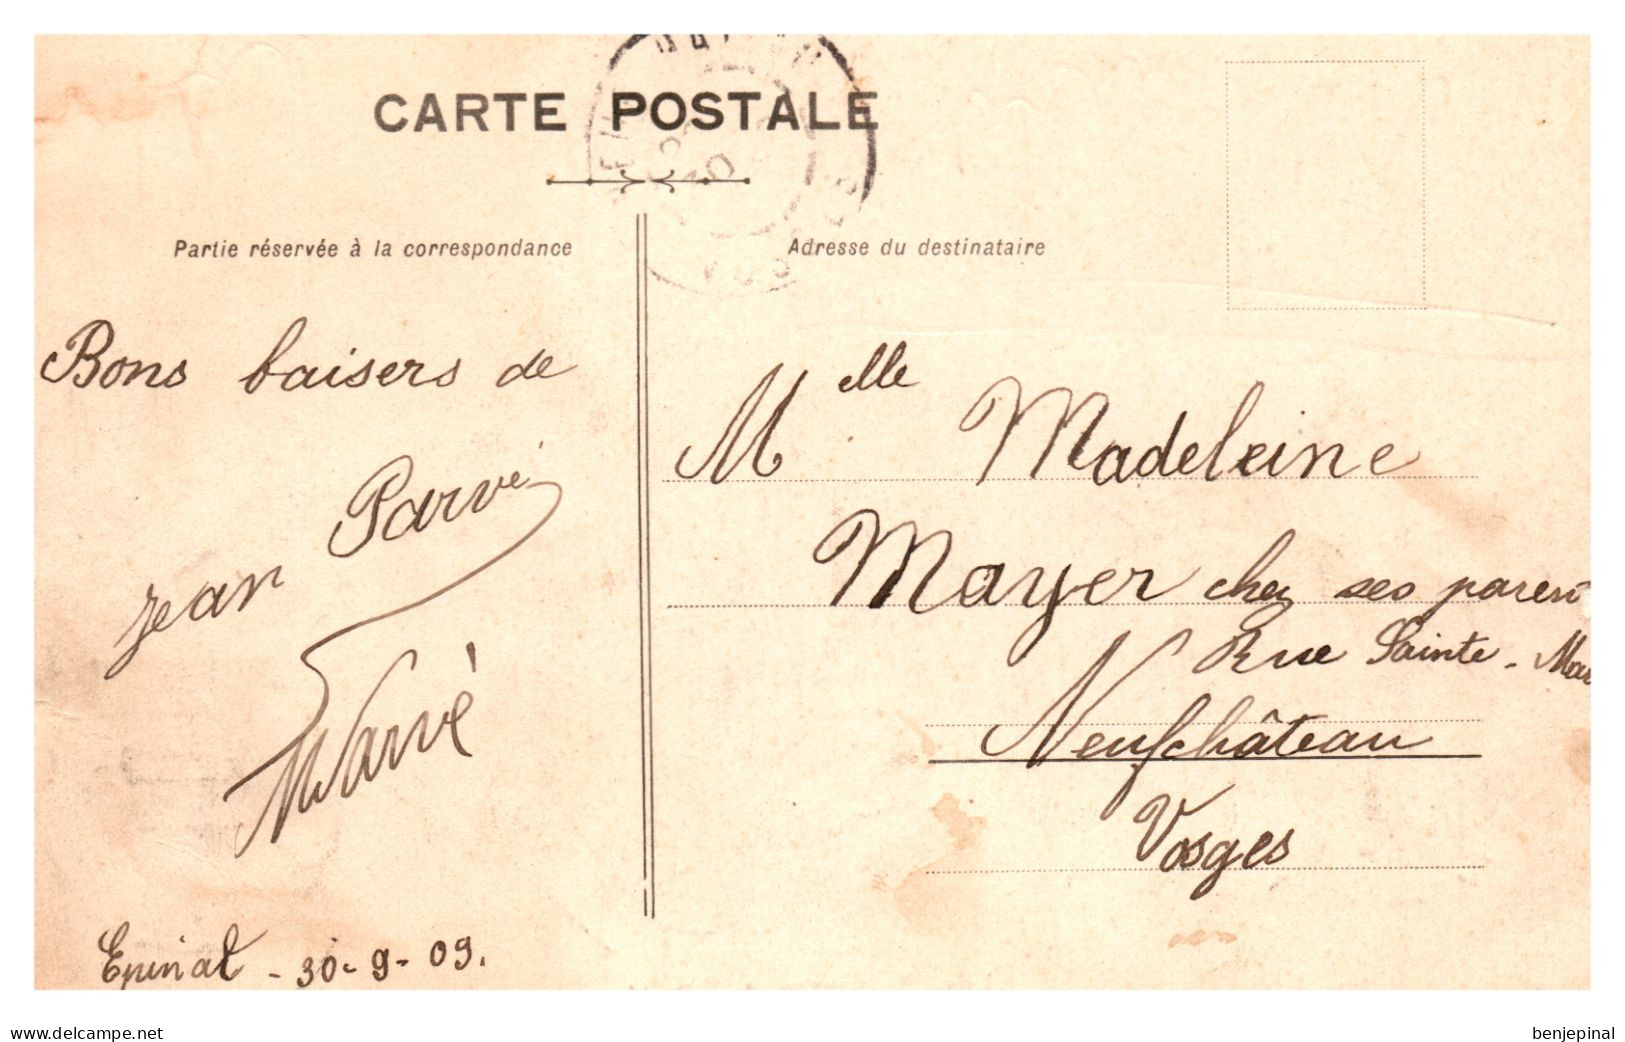 CARTE POSTALE
Partie réservée à la correspondance
Adresse du destinataire
Bons baisers de
Jean Parvé
Marvé
Epinal - 30-9-09.
Melle Madeleine
Mayer chez ses paren
Rue Sainte-Mar
Neufchâteau
Vosges
www.delcampe.net
benjepinal